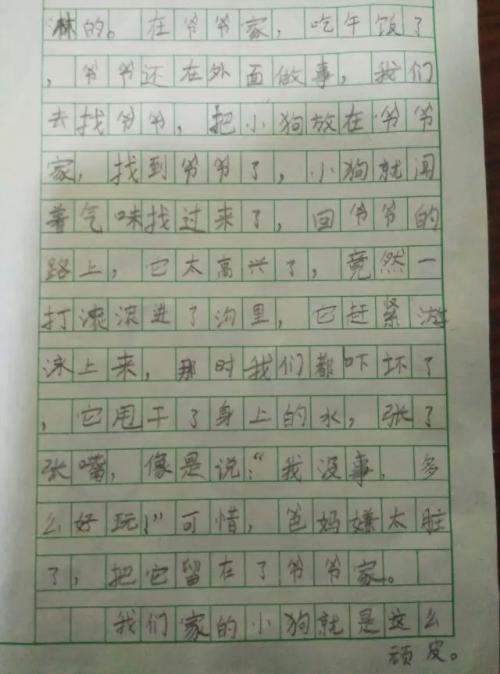 淋的。在爷爷家，吃午饭了
，爷爷还在外面做事，我们
去找爷爷，把小狗放在爷爷
家，找到爷爷了，小狗就闻
着气味找过来了，回爷爷的
路上，它太高兴了，竟然一
打滚滚进了沟里，它赶紧游
泳上来，那时我们都吓坏了
，它甩干了身上的水，张了
张嘴，像是说：“我没事，多
么好玩！”可惜，爸妈嫌太脏
了，把它留在了爷爷家。
我们家的小狗就是这么
顽皮。